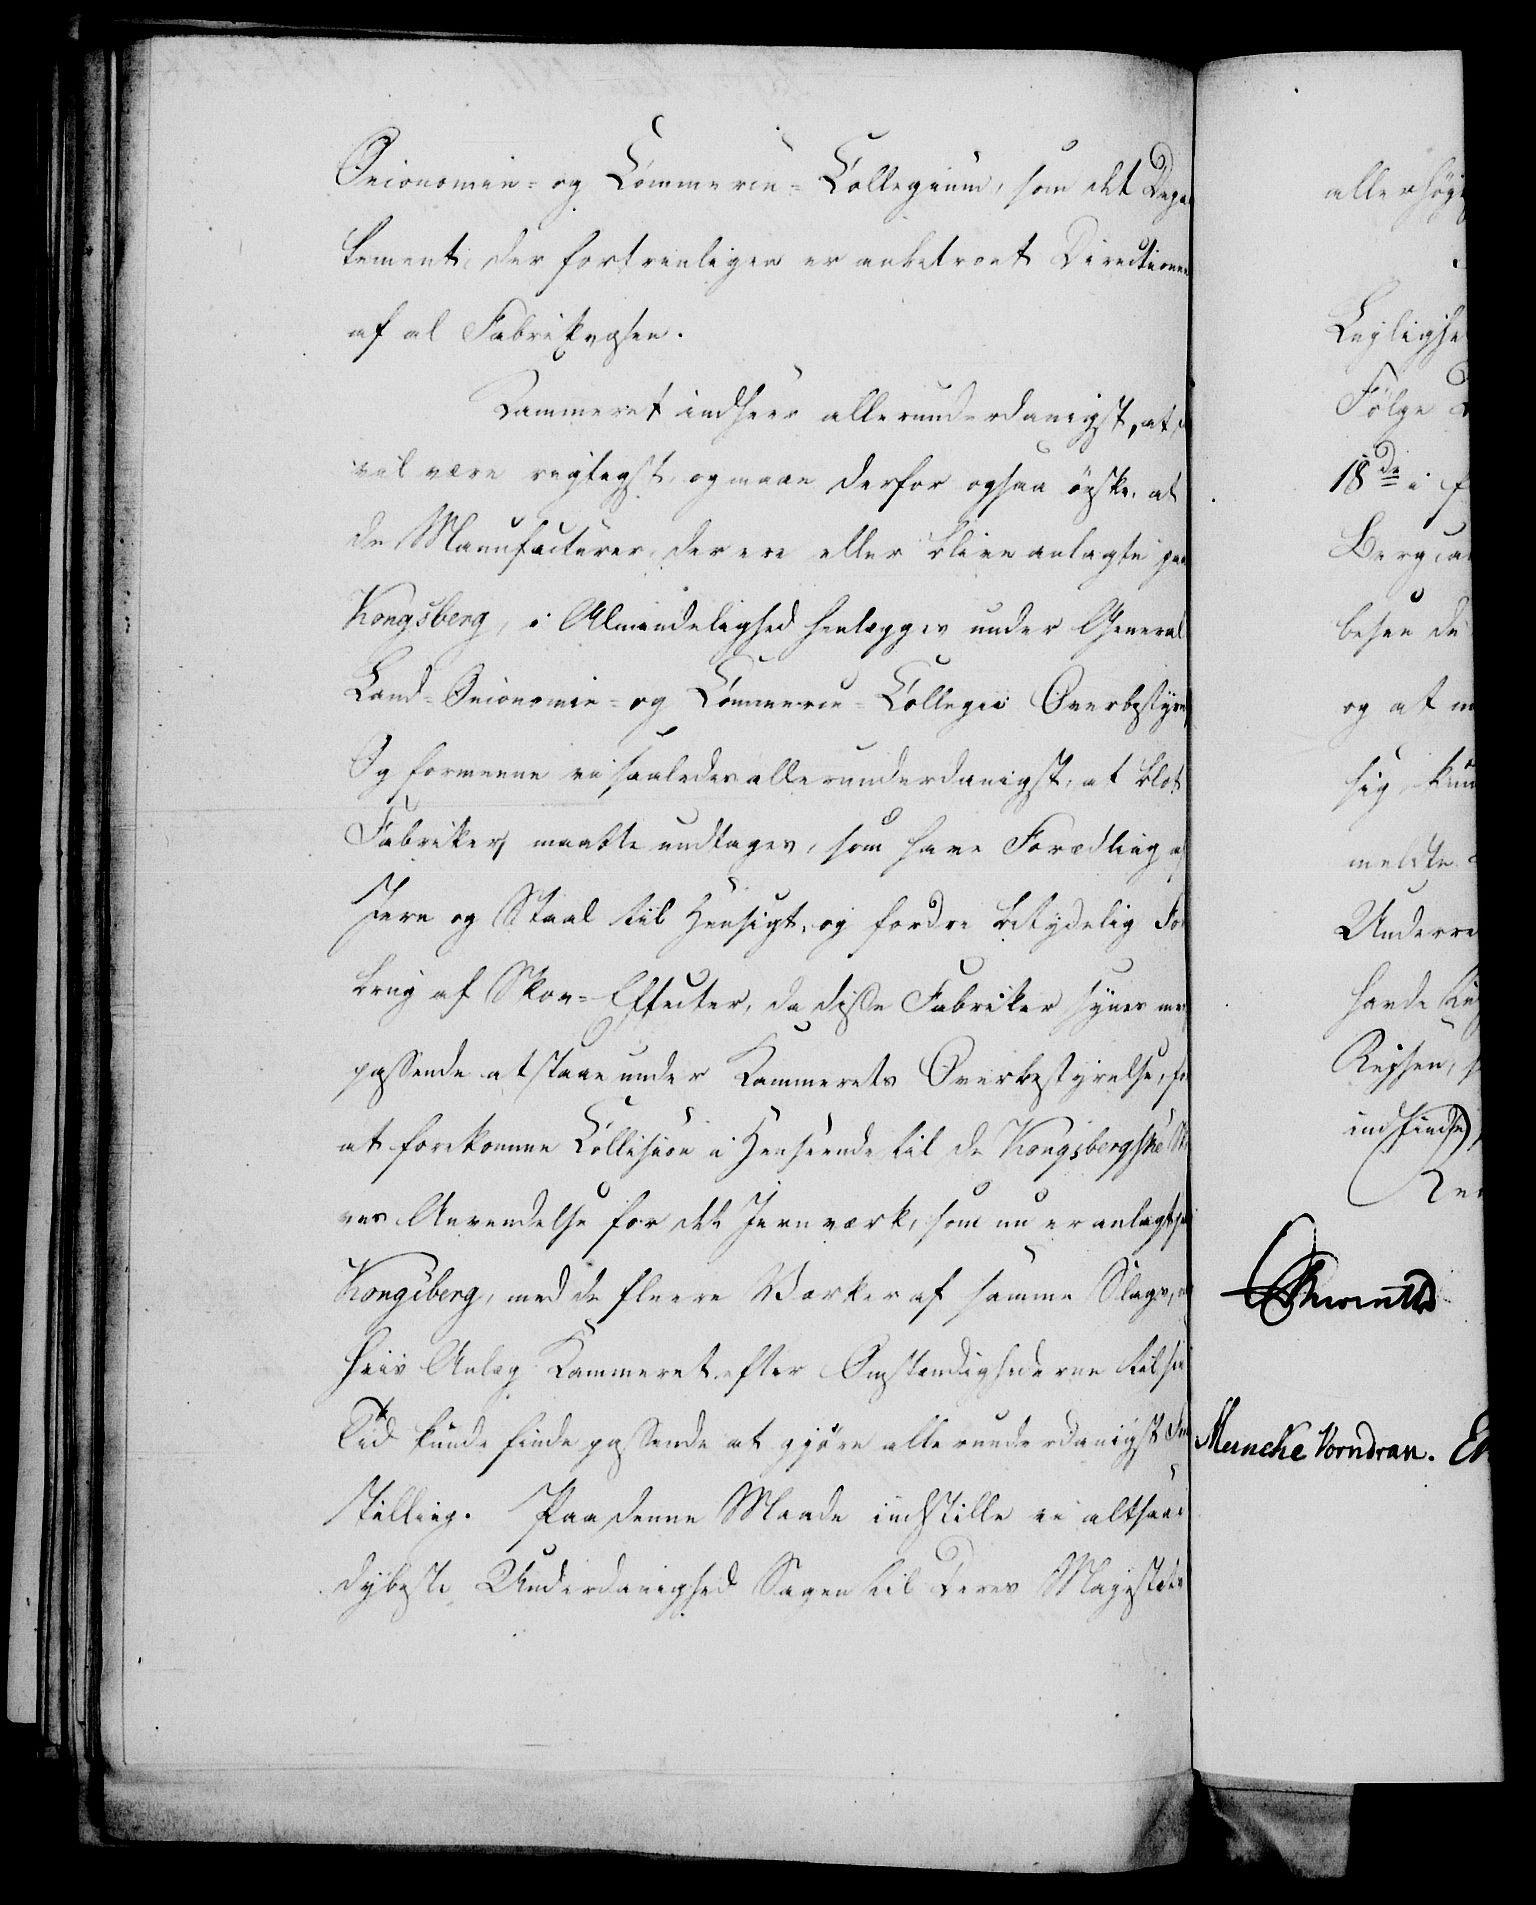 Oeconomie- og Commerce-Collegium, som det Depar
tement, der fortrinligen er anbetroet Directionen
af al Fabrikvæsen.
Kammeret indseer allerunderdanigst, at
vil være rigtigst, og maae derfor ogsaa ønske, at
de Manufacturer, der ere eller blive anlagte paa
Kongsberg, i Almindelighed henlægges under General
Land-Oeconomie- og Commerce-Collegii Overbestyrel
Og formeene vi saaledes allerunderdanigst, at blot
Fabriker maatte undtages, som have Forædling af
Jern og Staal til Hensigt, og fordre betydelig For
brug af Skov-Effecter, da disse Fabriker synes mere
passende at staae under Kammerets Overbestyrelse, for
at forekomme Collision i Henseende til de Kongsbergske Sko
ves Anvendelse for det Jernværk, som nu er anlagt paa
Kongsberg, med de fleere Værker af samme Slags,
hvis Anlæg Kammeret efter Omstændighederne til sin
Tid kunde finde passende at gjøre allerunderdanigst Fore
stilling. Paa denne Maade indstille vi altsaa i
dybeste Underdanighed Sagen til Deres Majestæts
allerhøj
Leylighe
Følge
18de i f
Bergca
besee de
og at m
sig kun
meldte
Underre
havde
Rejsen,
indfinde
Muncke Vorndran.